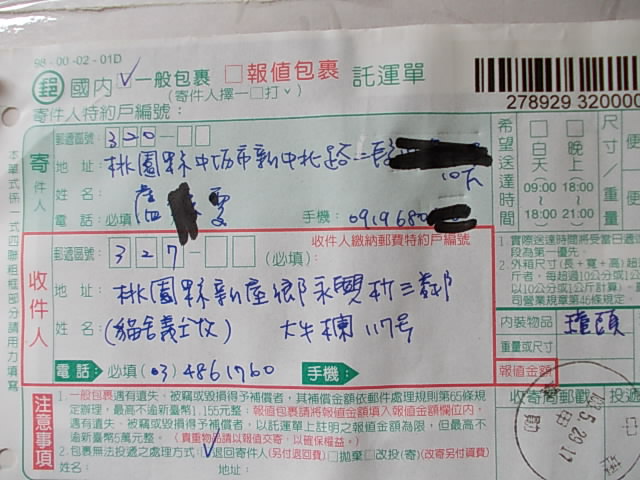 98-00-02-01D
郵 國內 ✓一般包裹 □報值包裹 託運單
(寄件人擇一□打✓)
278929 320000
寄件人特約戶編號：
寄件人
郵遞區號：320-□□
地址：桃園縣中坜市新中北路二段
10F
姓名：
電話：必填 手機：0919680
希望送達時間
□白天 (09:00~18:00)
□晚上 (18:00~21:00)
尺寸/重量
收件人
郵遞區號：327-□□ (必填)：
收件人繳納郵費特約戶編號
地址：桃園縣新屋鄉永興村三鄰
姓名：(貓舍義工收) 大牛欄117号
電話：必填(03)4861760 手機：
1.實際送達時間將受當日
段為第一優先。
2.外箱尺寸(長+寬+高)
內裝物品
罐頭
重量或尺寸
報值金額
注意事項
1.一般包裹遇有遺失、被竊或毀損得予補償者，其補償金額依郵件處理規則第65條規
定辦理，最高不逾新臺幣1,155元整；報值包裹請將報值金額填入報值金額欄位內，
遇有遺失、被竊或毀損得予補償者，以託運單上註明之報值金額為限，但最高不
逾新臺幣5萬元整。(貴重物品請以報值交寄，以確保權益。)
2.包裹無法投遞之處理方式：✓退回寄件人(另付退回費)□拋棄□改投(寄)(改寄另付資費)
姓名： 地址：
收寄局郵戳
投
本單式係一式四聯組框部分請用力填寫